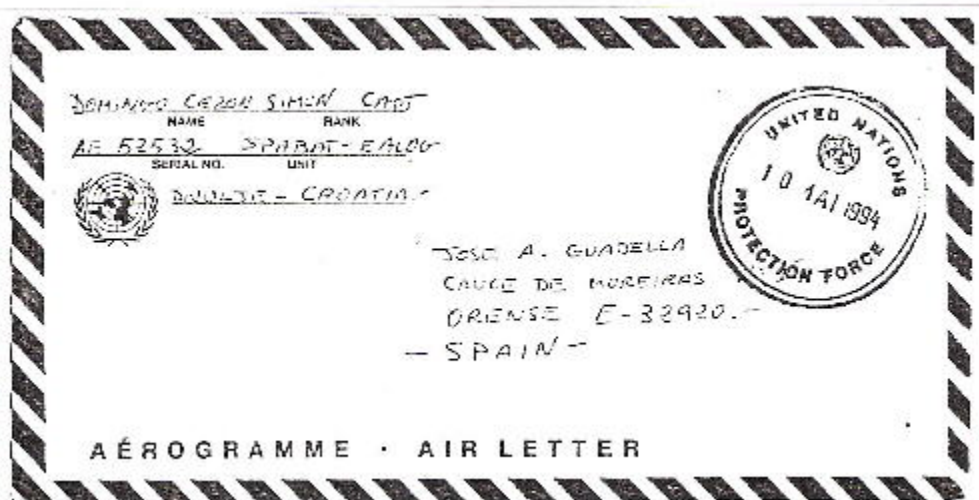 DOMINGO CEZON SIMON CAPT
NAME RANK
AE 57532 SPABAT - EALOG
SERIAL NO. UNIT
DIVULJE - CROATIA -
UNITED NATIONS
10 MAI 1994
PROTECTION FORCE
JOSE A. GUADELLA
CRUCE DE MOREIRAS
ORENSE E-32920.-
- SPAIN -
AÉROGRAMME · AIR LETTER